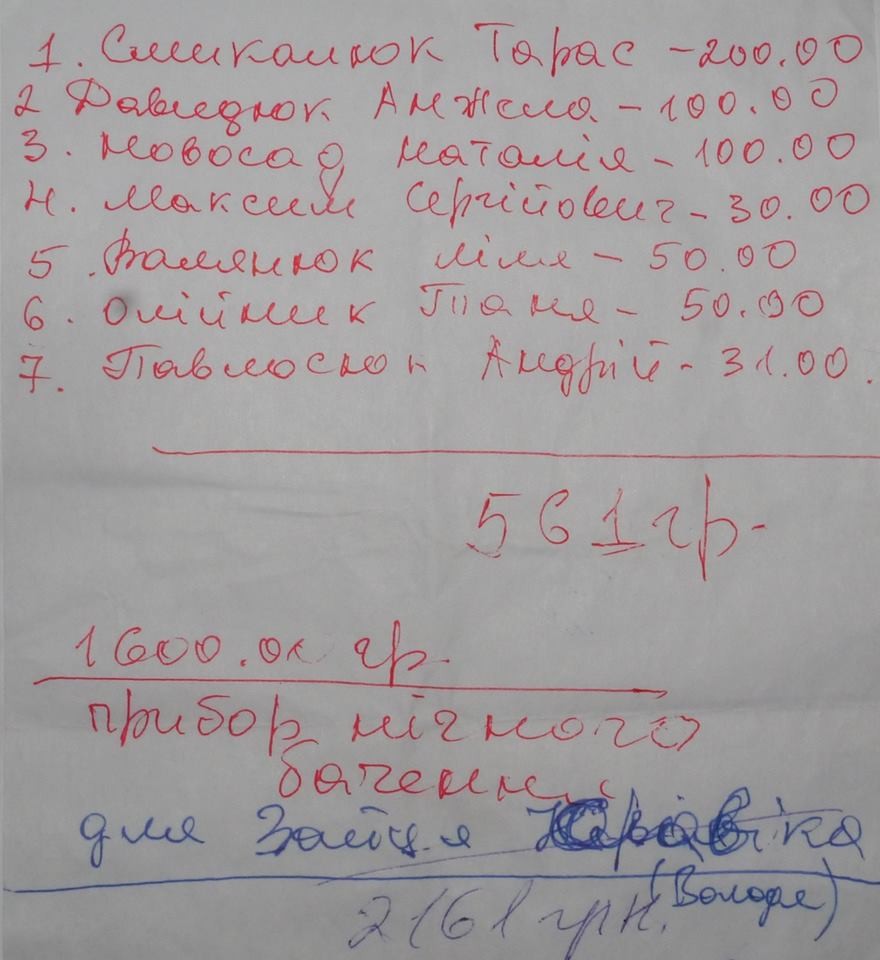 1. Смикалюк Тарас - 200.00
2 Давидюк Анжела - 100.00
3. Новосад Наталія - 100.00
4. Максим Сергійович - 30.00
5. Валянюк Ліля - 50.00
6. Олійник Таня - 50.00
7. Павлосюк Андрій - 31.00.
561 гр.
1600.00 гр.
прибор нічного
бачення
для Зайця
(Володя)
2161 грн.